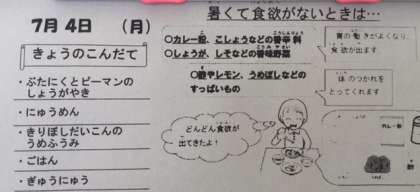 7月4日　(月)
きょうのこんだて
・ぶたにくとピーマンの
しょうがやき
・にゅうめん
・きりぼしだいこんの
うめふうみ
・ごはん
・ぎゅうにゅう
暑くて食欲がないときは…
○カレー粉、こしょうなどの香辛料
○しょうが、しそなどの香味野菜
○酢やレモン、うめぼしなどの
すっぱいもの
胃の動きがよくなり、
食欲が出ます。
体のつかれを
とってくれます。
どんどん食欲が
出てきたよ！
カレー粉
酢